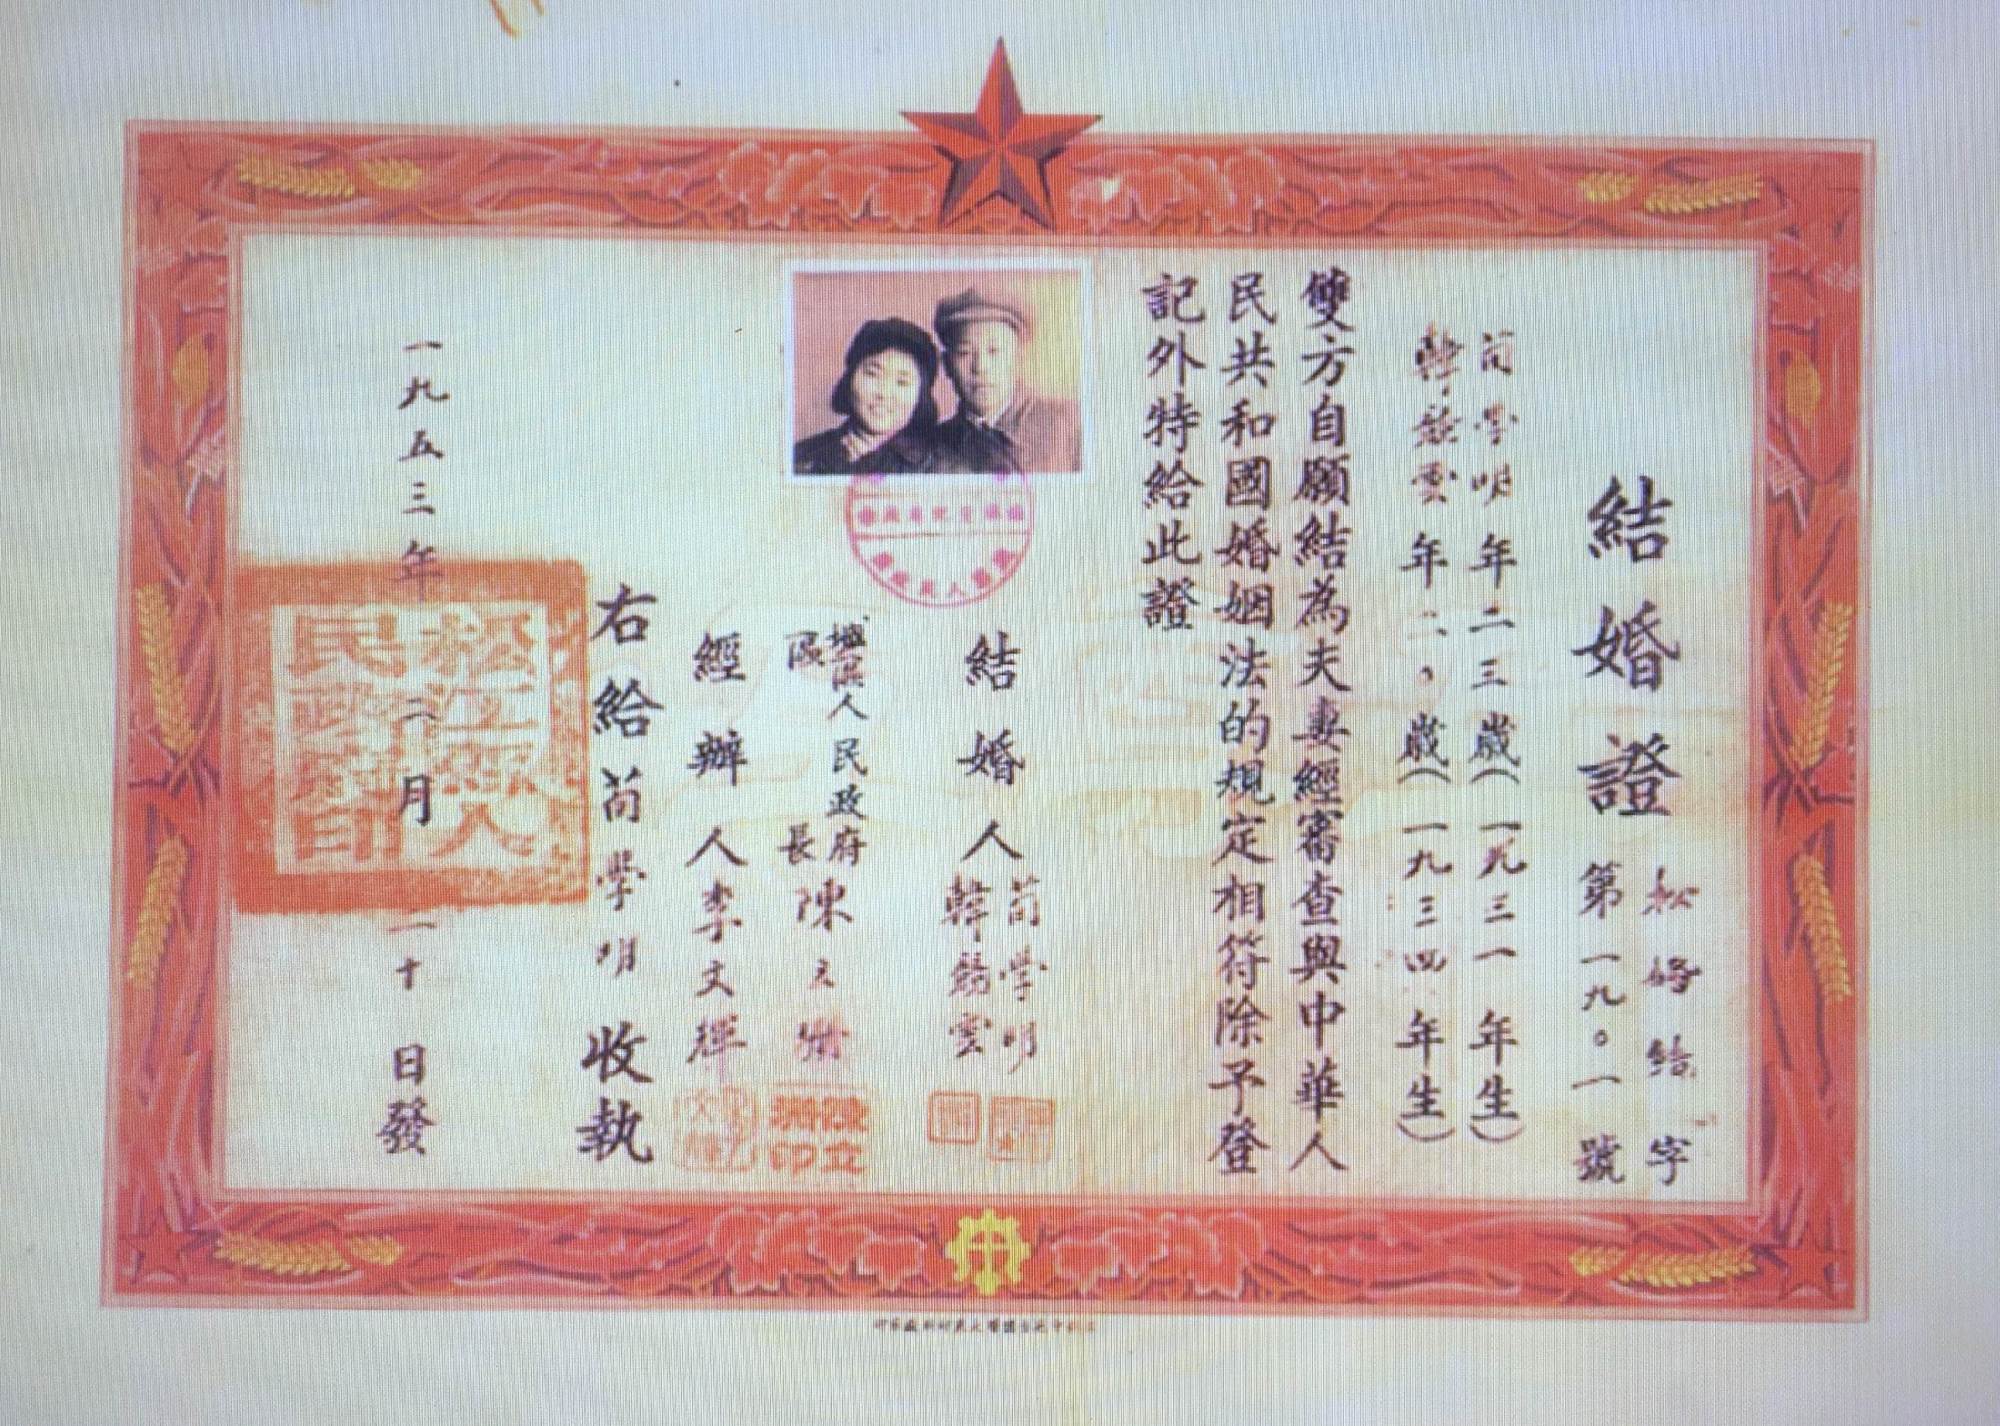 結婚證
松婚結字
第一九〇一號
荀学明年二三歲(一九三一年生)
年二〇歲(一九三四年生)
雙方自願結為夫妻經審查與中華人
民共和國婚姻法的規定相符除予登
記外特給此證
結婚人
荀學明
韓錫雲
人民政府
區長陳立
陳立
印
經辦人李文輝
右給荀學明收執
一九五三年二月二十日發
松江縣人
民政府印